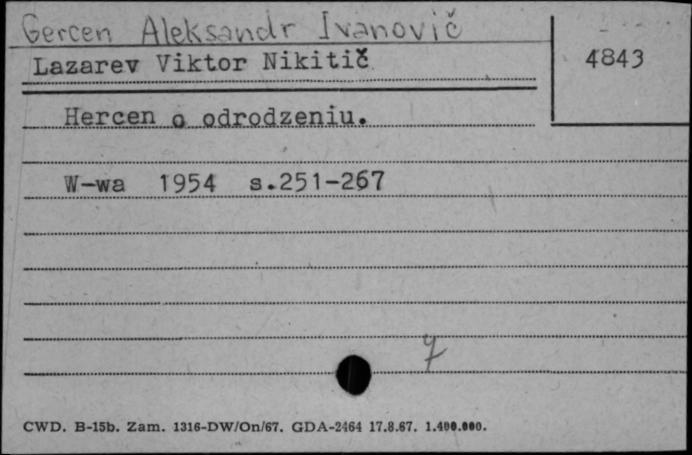 Gercen Aleksandr Ivanovič
4843
Lazarev Viktor Nikitič
Hercen o odrodzeniu.
W-wa 1954 s.251-267
7
CWD. B-15b. Zam. 1316-DW/On/67. GDA-2464 17.8.67. 1.400.000.